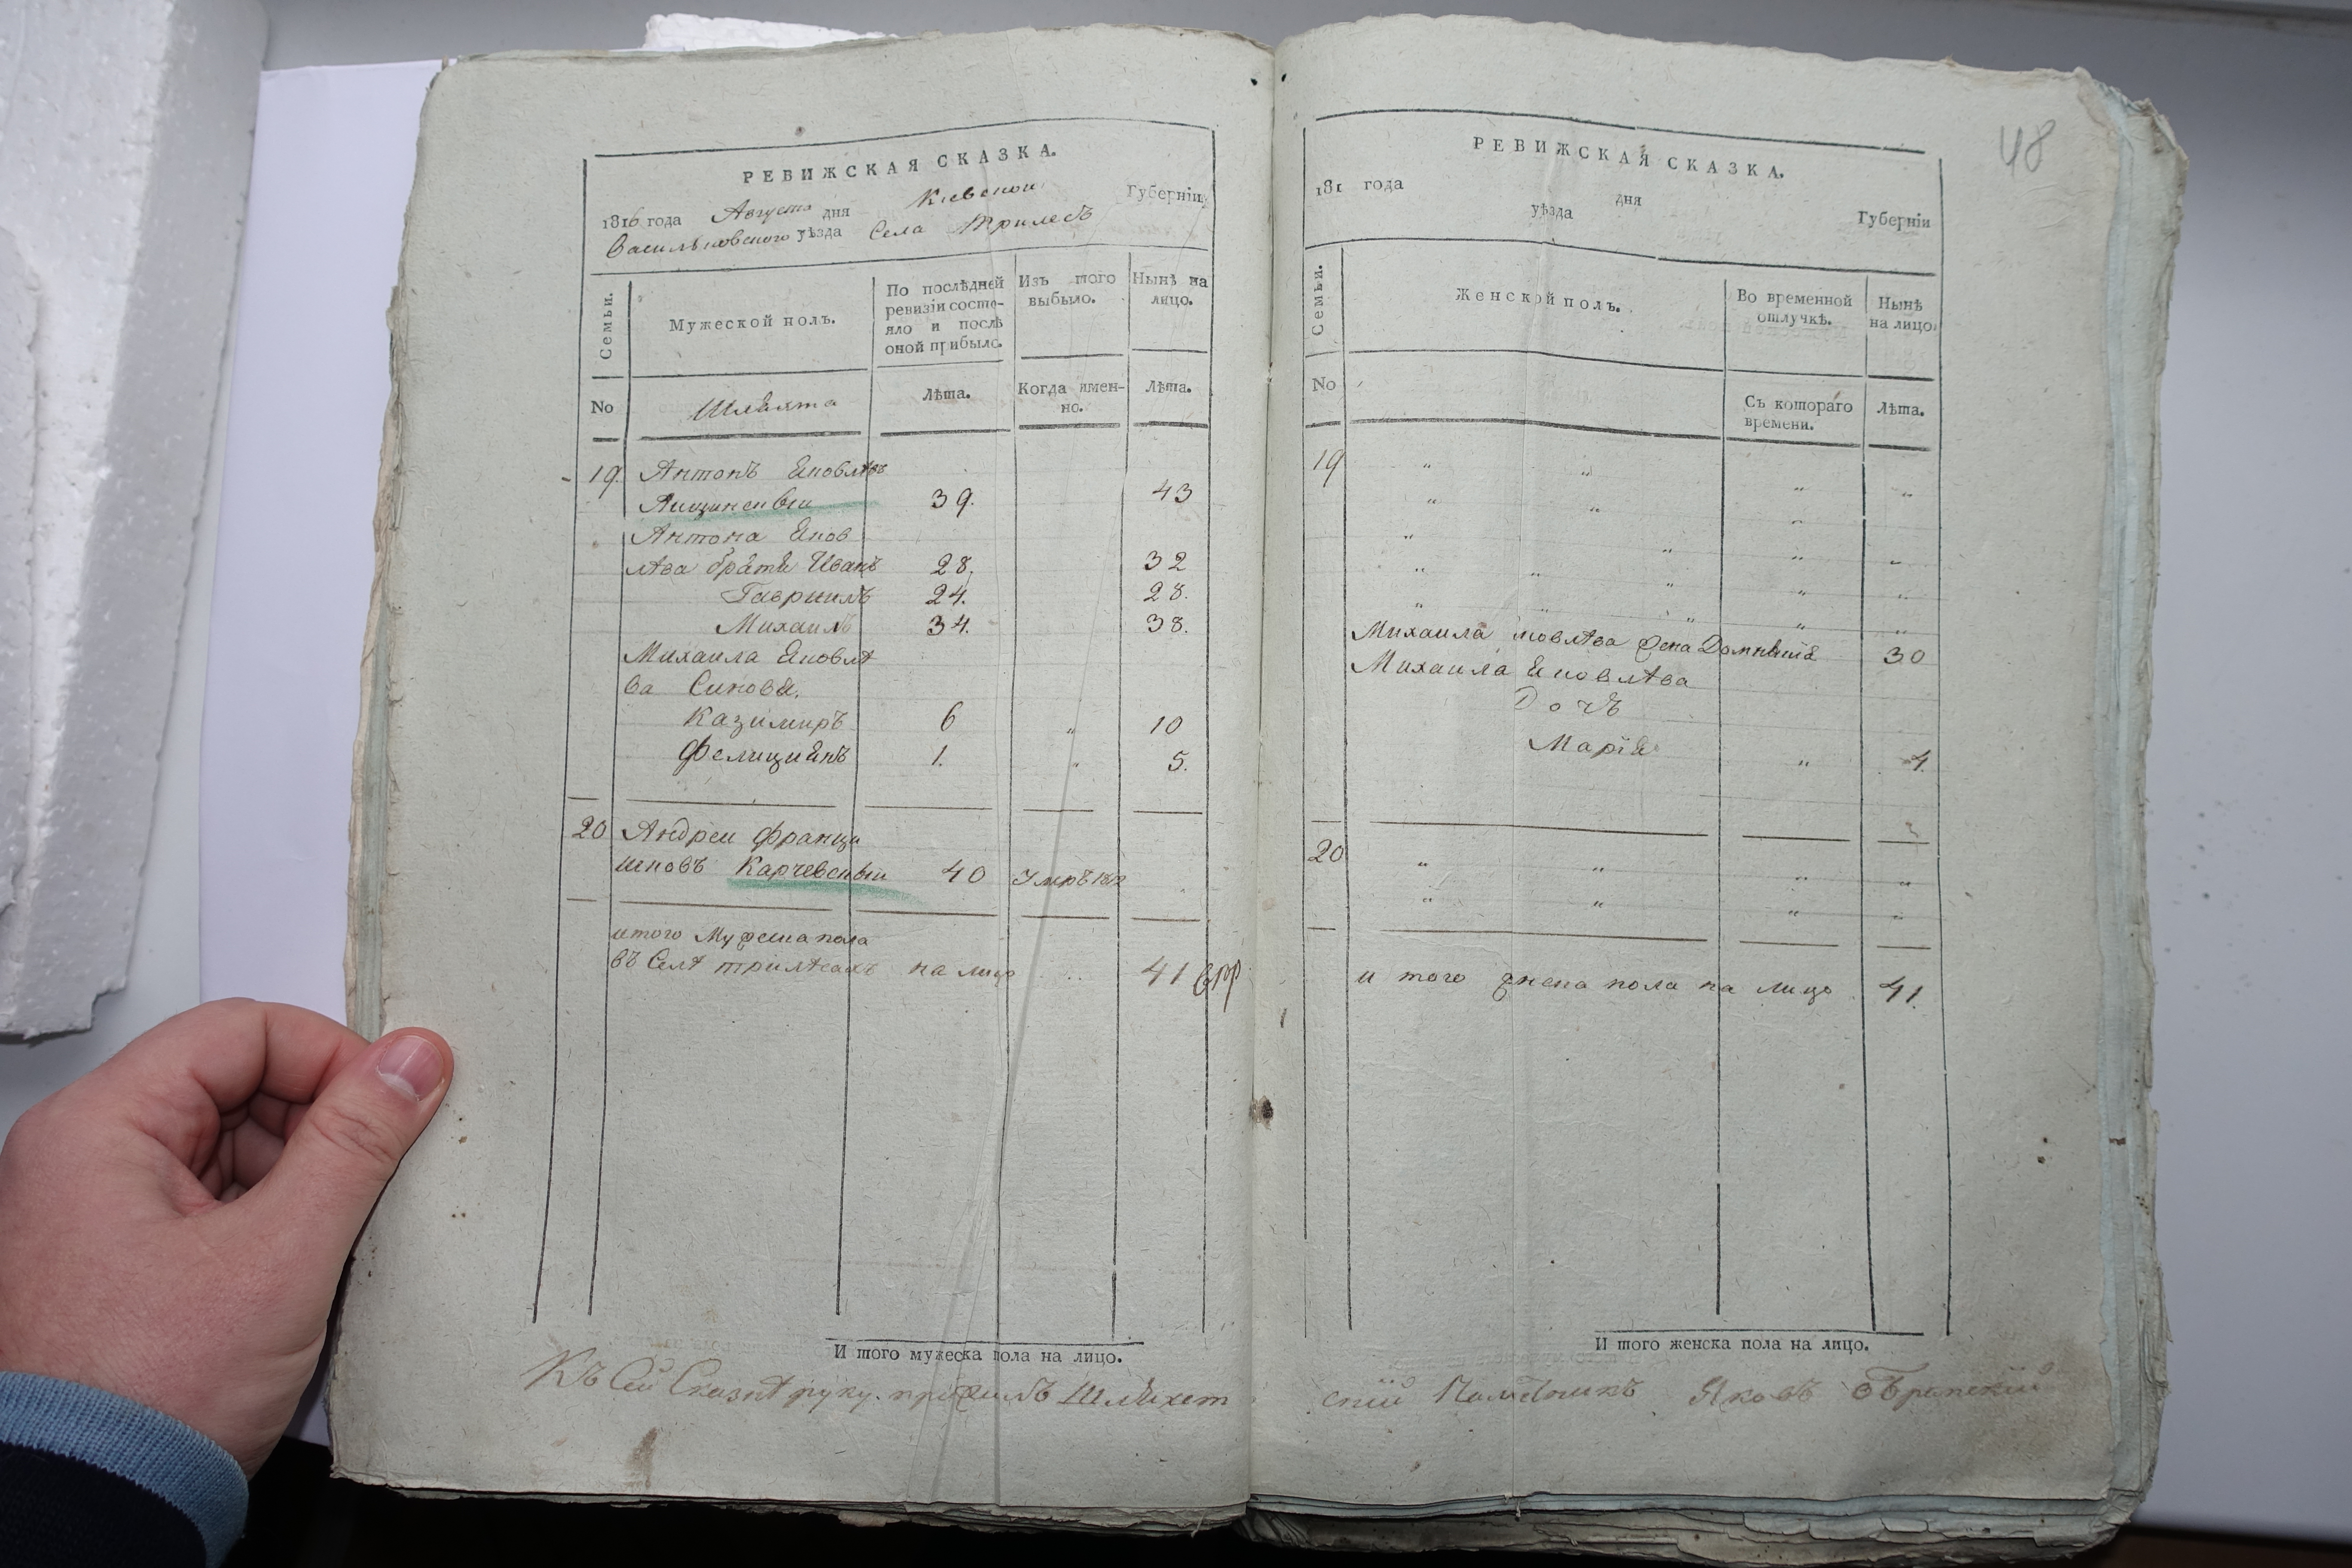 РЕВИЖСКАЯ СКАЗКА.
1816 года Августа дня Киевской Губерніи
Васильковского уѣзда Села Трилесъ
Семьи.
Мужеской полъ.
По послѣдней ревизіи состо-
яло и послѣ
оной прибыло.
Изъ того
выбыло.
Нынѣ на
лицо.
No
Шляхта
Лѣта.
Когда имен-
но.
Лѣта.
19. Антонъ Яковлѣвъ
39. 43
Антона Яков
лѣва братя Иванъ 28. 32
Гавриилъ 24. 28.
Михаилъ 34. 38.
Михаила Яковлѣ
ва Синовя.
Казимиръ 6 " 10
Фелициянъ 1. " 5.
20 Андреи Франци
шковъ Карчевскыи 40 Умръ 1812
итого Мужеска пола
въ Селѣ трилѣсахъ на лицо 41
И того мужеска пола на лицо.
Къ Сей Сказкѣ руку приложилъ Шляхет
48
РЕВИЖСКАЯ СКАЗКА.
181 года дня Губерніи
уѣзда
Семьи.
Женской полъ.
Во временной
отлучкѣ.
Нынѣ
на лицо
No
Съ котораго
времени.
Лѣта.
19 " " " "
" " "
" " " "
" " " " "
" " " " "
Михаила яковлѣва жена 30
Михаила Яковлѣва
Дочъ
Марія " 4.
20 " " " "
" " " "
и того женска пола на лицо 41.
И того женска пола на лицо.
скій Яковъ